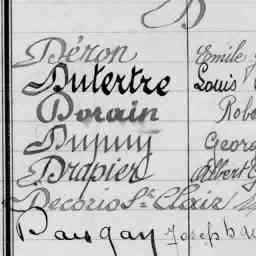 D
Déron Emile
Dutertre Louis
Dorain Robe
Dupuy Georg
Drapier Albert G
Decorio St Clair
Daugay Joseph